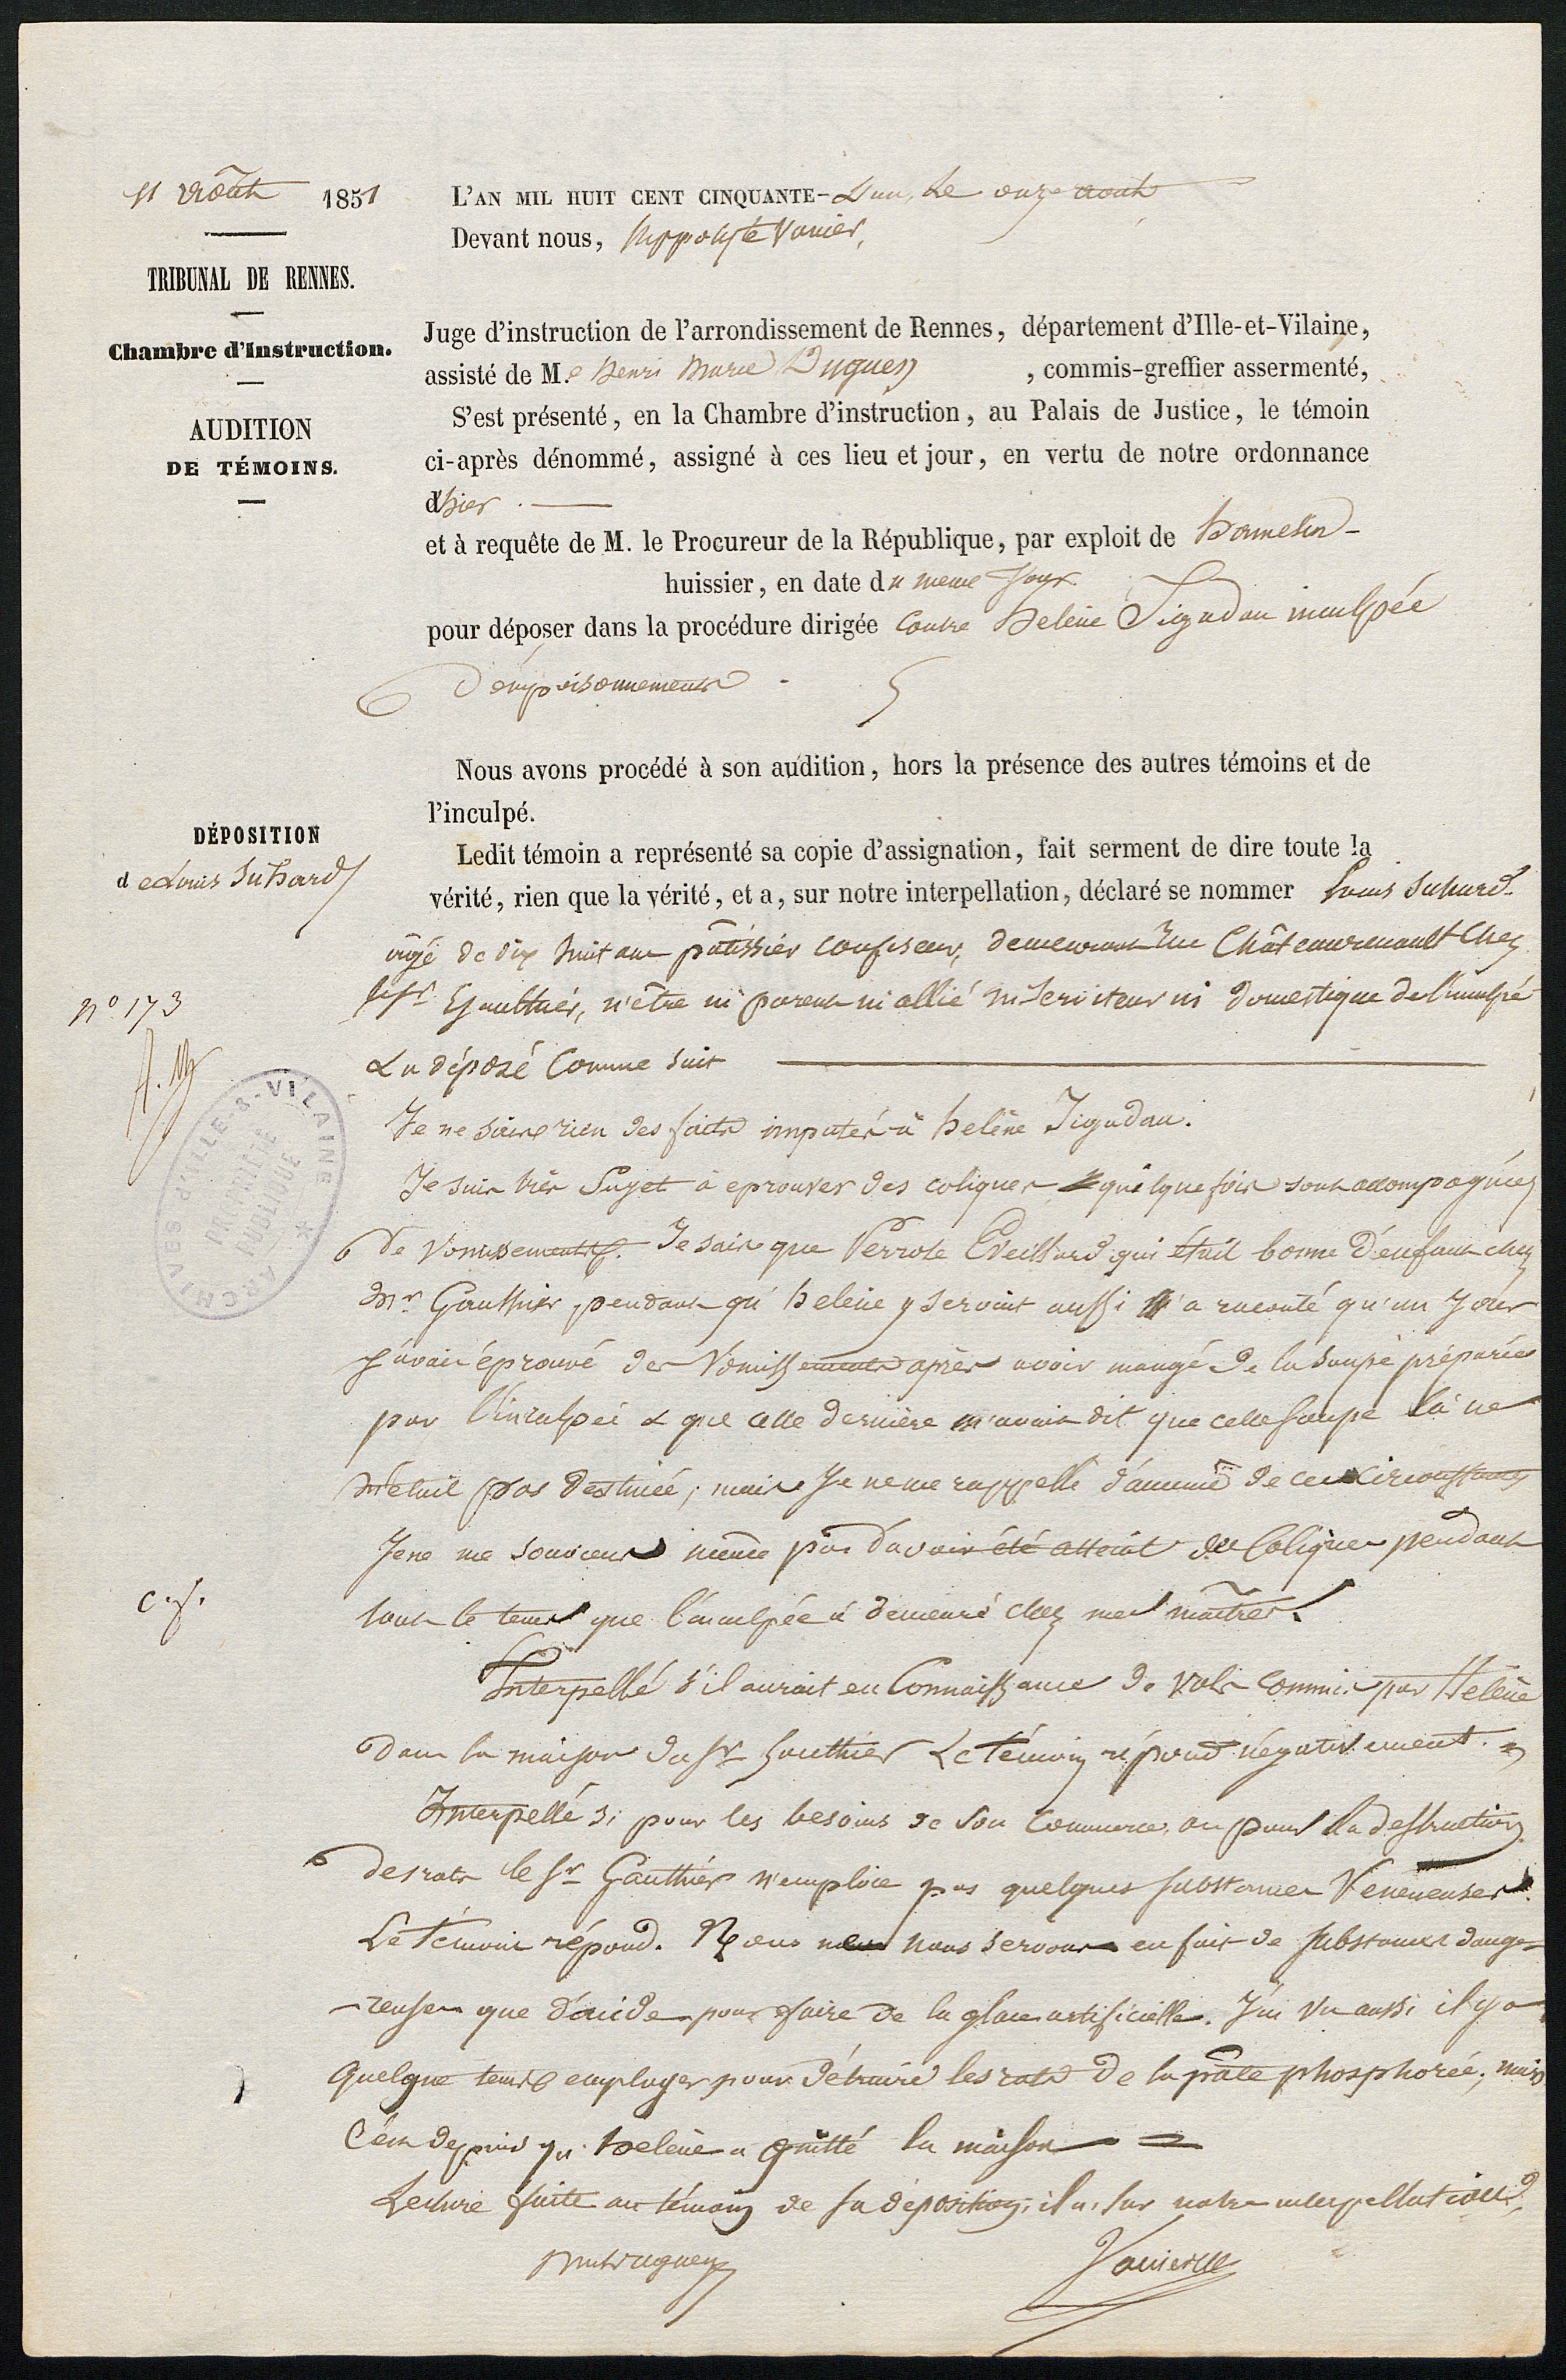 11 août 1851
TRIBUNAL DE RENNES.
Chambre d'Instruction.
AUDITION
DE TÉMOINS.
L'AN MIL HUIT CENT CINQUANTE-Un, Le onze août
Devant nous, Hippolyte Vanier,
Juge d'instruction de l'arrondissement de Rennes, département d'Ille-et-Vilaine,
assisté de M.e Henri Marie Duguen, commis-greffier assermenté,
S'est présenté, en la Chambre d'instruction, au Palais de Justice, le témoin
ci-après dénommé, assigné à ces lieu et jour, en vertu de notre ordonnance
d'hier.
et à requête de M. le Procureur de la République, par exploit de
huissier, en date du meme Jour
pour déposer dans la procédure dirigée Contre helène Jégadau inculpée
d'empoisonnements.
Nous avons procédé à son audition, hors la présence des autres témoins et de
l'inculpé.
DÉPOSITION
de Louis Suhard
Ledit témoin a représenté sa copie d'assignation, fait serment de dire toute la
vérité, rien que la vérité, et a, sur notre interpellation, déclaré se nommer Louis Suhard
âgé de dix huit ans pâtissier confiseur, demeurant Rue Châteaurenault Chez
le Sr Gaulthier, n'être ni parent ni allié ni Serviteur ni domestique de l'inculpé
n° 173
& a déposé Comme suit
ARCHIVES d'ILLE-&-VILAINE *
PROPRIÉTÉ
PUBLIQUE
Je ne sais rien des faits imputés à helène Jigadau.
Je suis très Sujet à eprouver des coliques & quelquefois sont accompagnées
de Vomissements. Je sais que Perrote Eveillard qui était bonne d'enfants chez
Mr Gauthier, pendant qu'helène y servait aussi m'a raconté qu'un jour
j'avais éprouvé des Vomissements après avoir mangé de la soupe préparée
par l'inculpée & que cette dernière m'avait dit que cette soupe là ne
m'etait pas destinée; mais Je ne me rappelle d'aucune de ces circonstances
Je ne me souviens même pas d'avoir été atteint de Coliques pendant
tout le tems que l'inculpée a demeuré chez mes maîtres.
Interpellé s'il aurait eu Connaissance de vols commis par Hélène
dans la maison du Sr Gauthier Le témoin répond négativement.
Interpellé si pour les besoins de son Commerce, ou pour la destruction
des rats le Sr Gauthier n'emploie pas quelques substances Vénéneuses.
Le témoin répond. Nous ne nous servons en fait de substances dange-
-reuses que d'acide pour faire de la glace artificielle. J'ai vu aussi il y a
quelque tems employer pour détruire les rats de la pâte phosphorée; mais
C'est depuis qu'helène a quitté la maison =
Lecture faite au témoin de sa déposition, il a, sur notre interpellation,
Duguen
Vanier